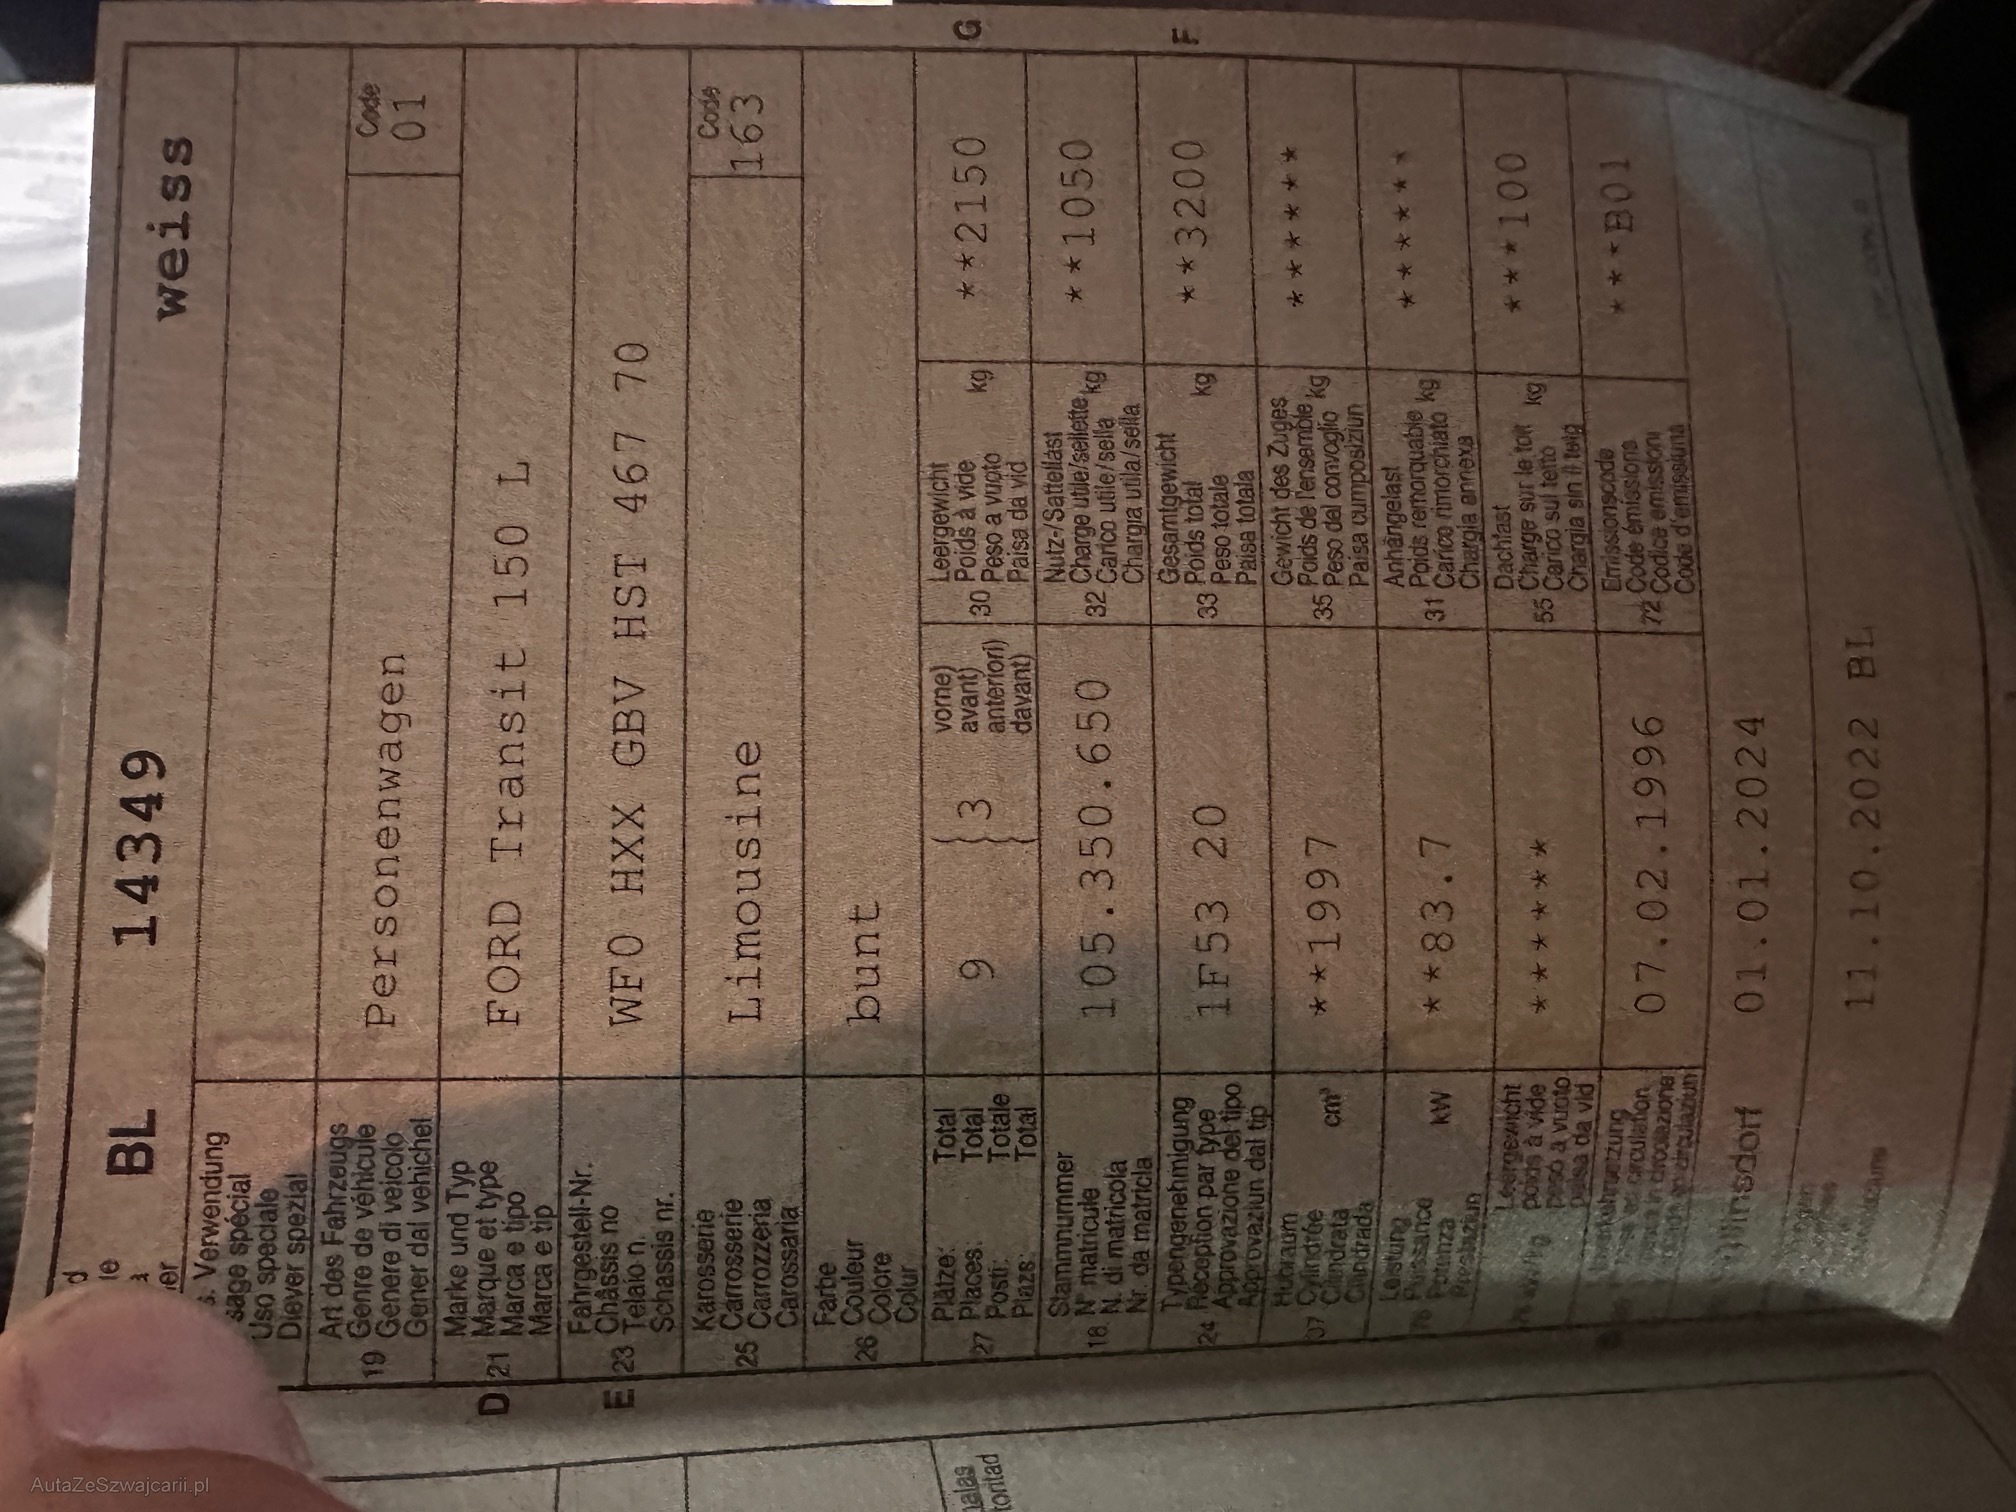 BL 14349 weiss
s. Verwendung
sage spécial
Uso speciale
Diever spezial
Art des Fahrzeugs
19 Genre de véhicule
Genere di veicolo
Gener dal vehichel
Personenwagen
Code
01
D
Marke und Typ
21 Marque et type
Marca e tipo
Marca e tip
FORD Transit 150 L
E
Fahrgestell-Nr.
23 Châssis no
Telaio n.
Schassis nr.
WF0 HXX GBV HST 467 70
Karosserie
25 Carrosserie
Carrozzeria
Carossaria
Limousine
Code
163
Farbe
26 Couleur
Colore
Colur
bunt
Plätze: Total
27 Places: Total
Posti: Totale
Plazs: Total
9 3
vorne)
avant)
anteriori)
davant)
Leergewicht
30 Poids à vide kg
Peso a vuoto
Paisa da vid
**2150
G
Stammnummer
18 N° matricule
N. di matricola
Nr. da matricla
105.350.650
Nutz-/Sattellast
32 Charge utile/sellette kg
Carico utile/sella
Chargia utila/sella
**1050
Typengenehmigung
24 Réception par type
Approvazione del tipo
Approvaziun dal tip
1F53 20
Gesamtgewicht
33 Poids total kg
Peso totale
Paisa totala
**3200
F
Hubraum
37 Cylindrée cm³
Cilindrata
Cilindrada
**1997
Gewicht des Zuges
35 Poids de l'ensemble kg
Peso del convoglio
Paisa cumposiziun
*******
Leistung
76 Puissance kW
Potenza
Prestaziun
**83.7
Anhängelast
31 Poids remorquable kg
Carico rimorchiato
Chargia annexa
*******
Leergewicht
poids à vide
peso a vuoto
paisa da vid
*******
Dachlast
55 Charge sur le toit kg
Carico sul tetto
Chargia sin il tetg
***100
07.02.1996
Emissionscode
72 Code émissions
Codice emissioni
Code d'emissiuns
***B01
01.01.2024
11.10.2022 BL
AutaZeSzwajcarii.pl